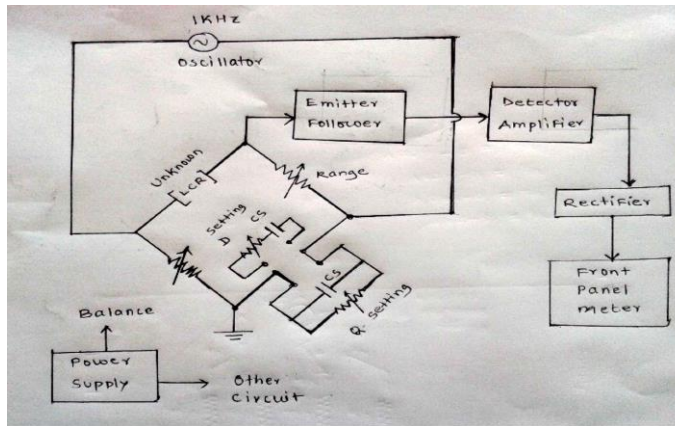 1KHz
Oscillator
Emitter
Follower
Detector
Amplifier
Unknown
LCR
Range
Rectifier
Setting
D
CS
CS
Q- Setting
Front
Panel
meter
Balance
Power
Supply
Other
Circuit